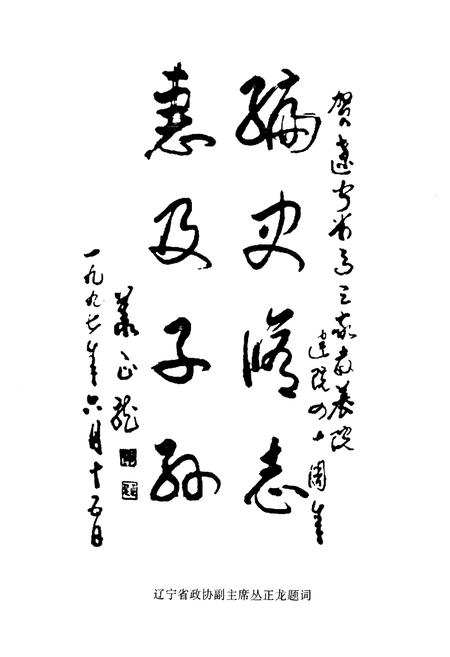 贺辽宁省马三家教养院
建院四十周年
编史修志
惠及子孙
丛正龙
一九九七年六月十五日
辽宁省政协副主席丛正龙题词